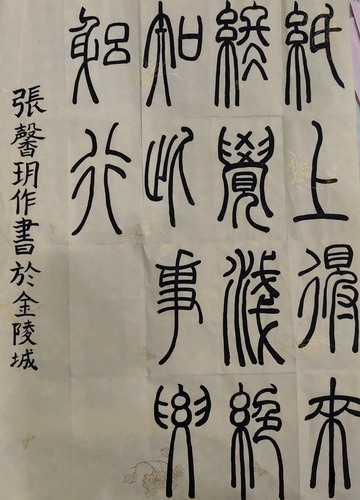 紙上得來
終覺淺絕
知此事要
躳行
張馨玥作書於金陵城